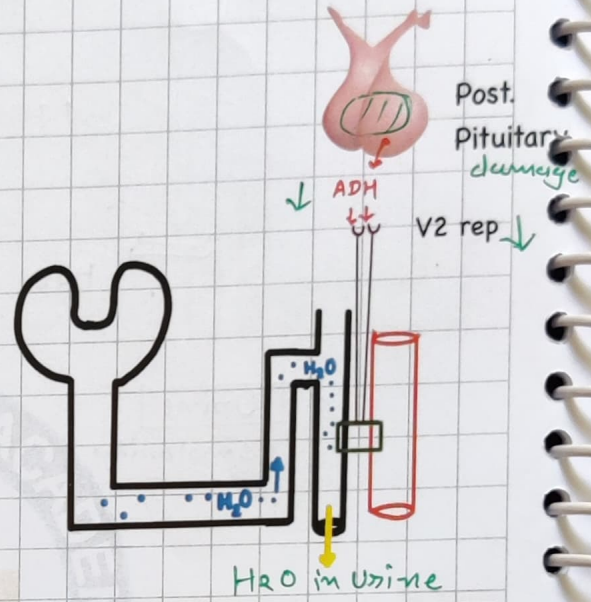 Post.
Pituitary
damage
↓ ADH
V2 rep ↓
H₂O
H₂O
H2O in urine